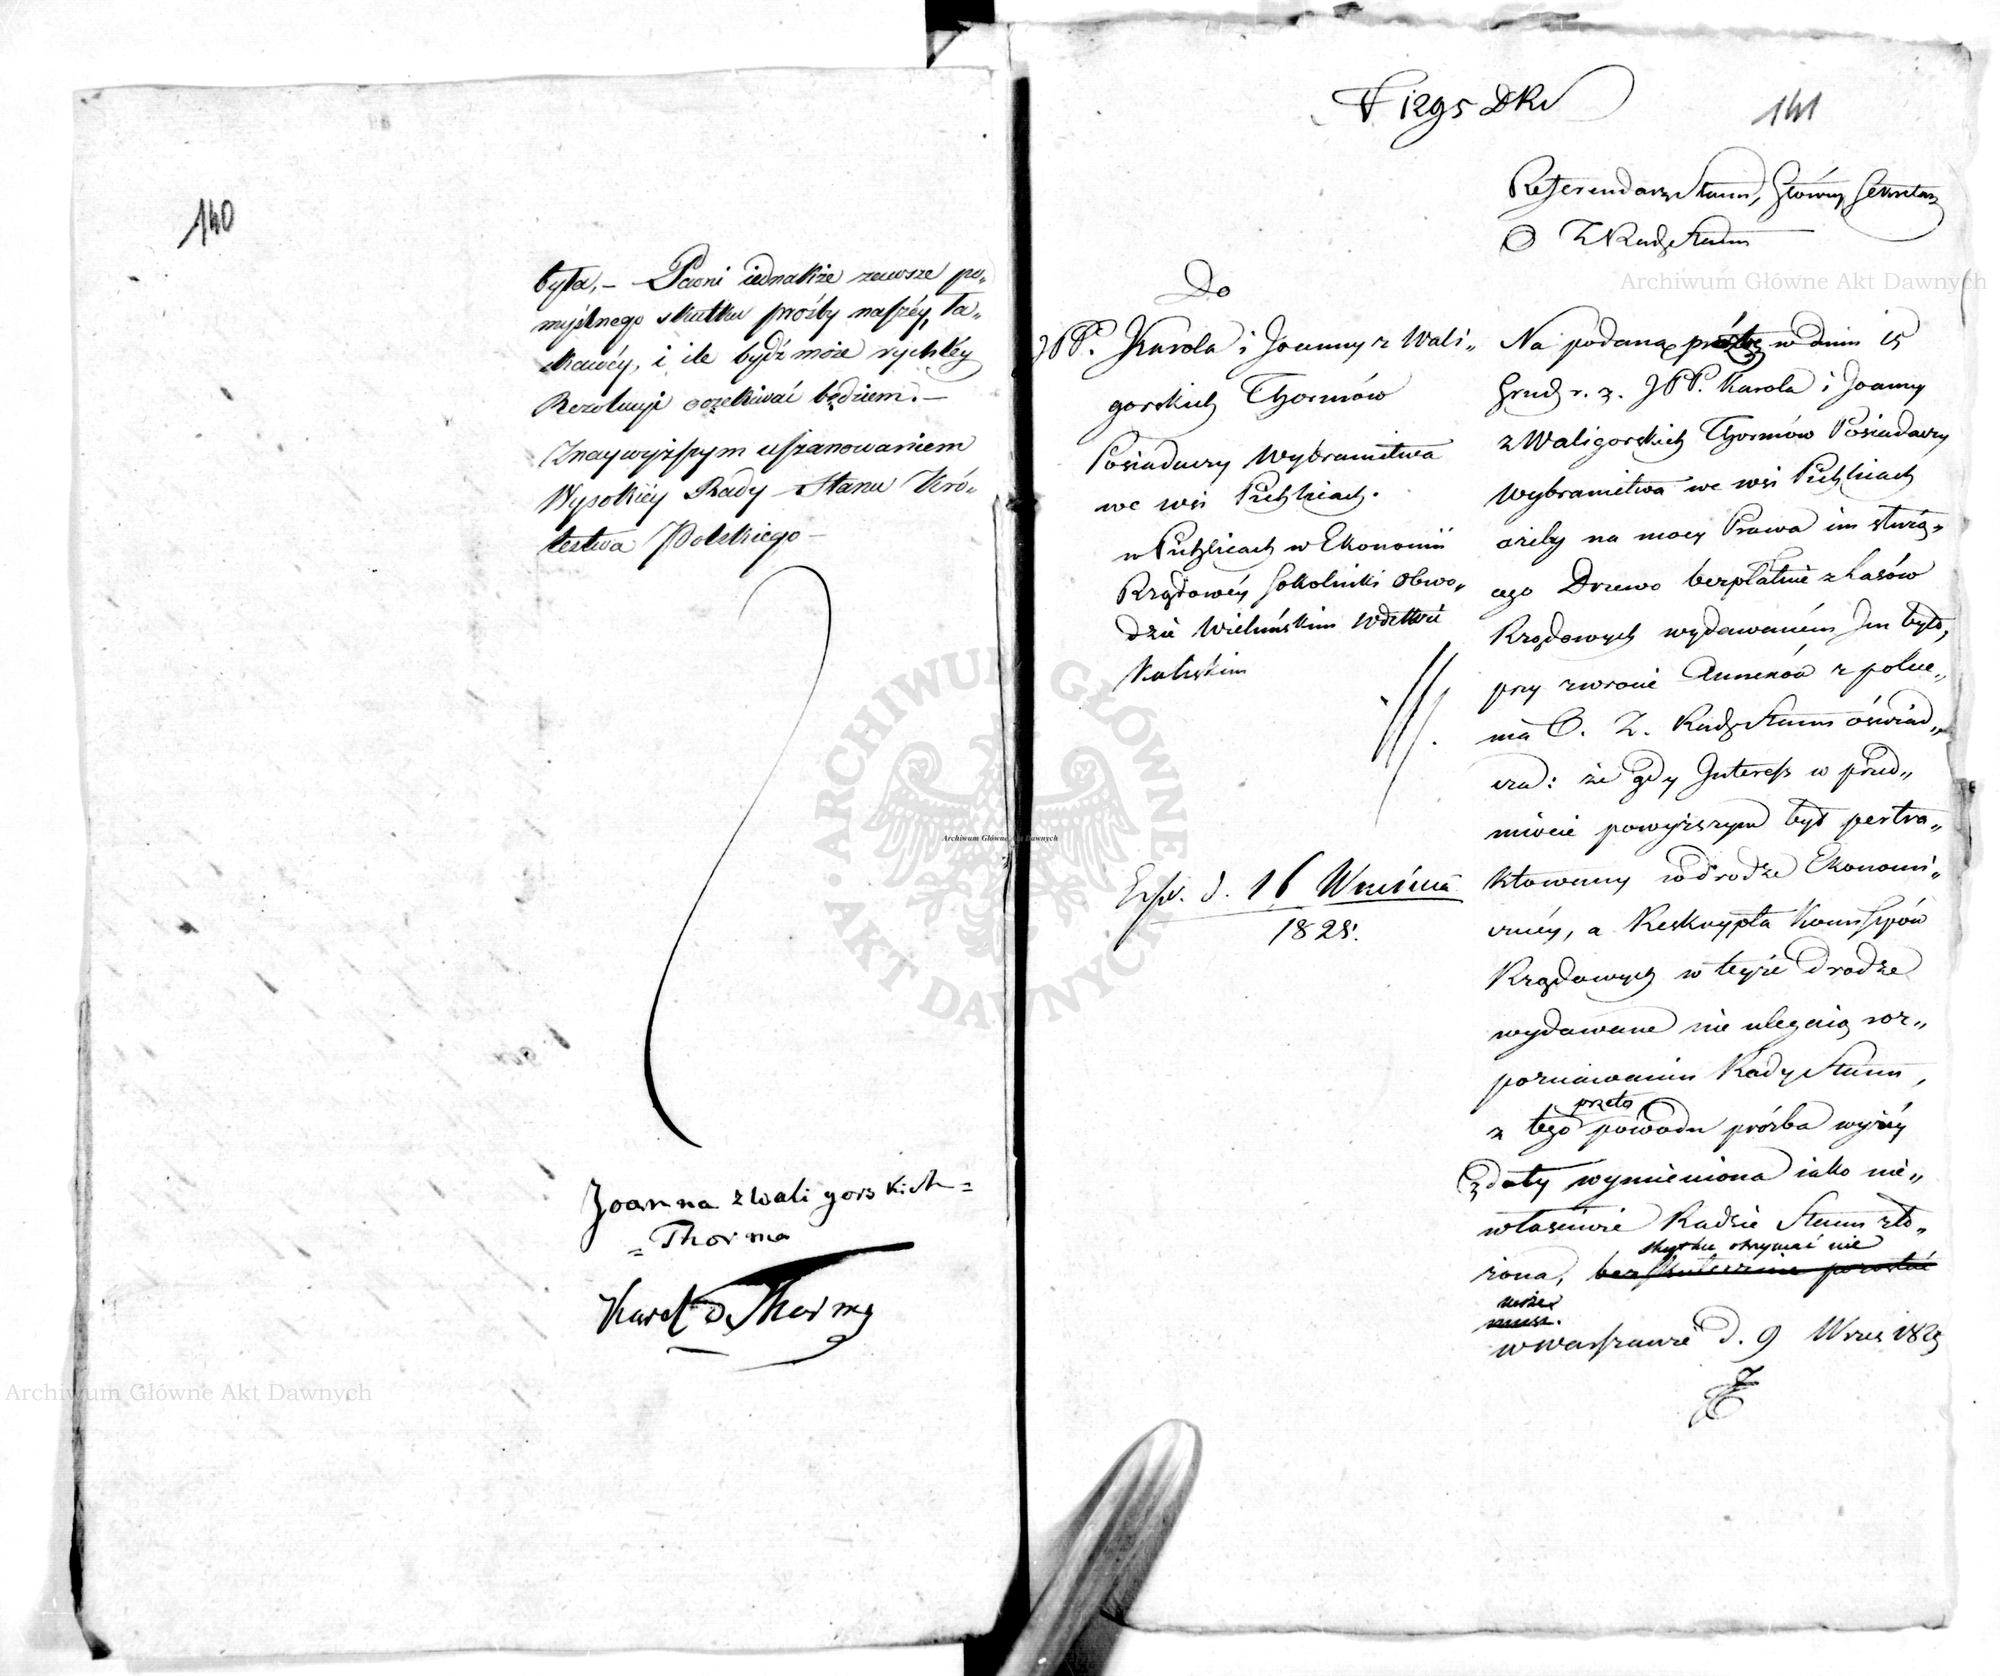 140
była, – Pewni iednakże zawsze po-
myślnego skutku prośby naszéy, ła-
skawéy, i ile bydź może rychłéy
Rezolucyi oczekiwać będziem. –
Z naywyższym uszanowaniem
Wysokiéy Rady Stanu Kró-
lestwa Polskiego –
Joanna z Waligorskich =
= Thorma
Karol Thorma
141
Referendarz Stanu, Główny Sekretarz
Rady Stanu
Do
JPP. Karola i Joanny z Wali-
gorskich Thormów
Posiadaczy Wybranictwa
we wsi Pichlicach.
w Pichlicach w Ekonomii
Rządowéy Sokolniki Obwo-
dzie Wieluńskim Wdztwie
Kaliskim
Exp. d. 16 Września
1825.
Na podaną prośbę w dniu 15
Grud r. z. JPP. Karola i Joanny
z Waligorskich Thormów Posiadaczy
Wybranictwa we wsi Pichlicach
ażeby na mocy Prawa im służą-
cego Drzewo bezpłatnie z Lasów
Rządowych wydawaném Im było,
przy zwrocie Annexów z polece-
nia O. Z. Rady Stanu oświad-
cza: że gdy Interess w przed-
miocie powyższym był pertra-
ktowany w drodze Ekonomi-
cznéy, a Reskrypta Kommissyów
Rządowych w teyże drodze
wydawane nie ulegaią roz-
poznawaniu Rady Stanu,
przeto
z tego powodu prośba wyżéy
z daty wymieniona iako nie-
właściwie Radzie Stanu zło-
skutku otrzymać nie
żona, bezskutecznie pozostać
może.
musi.
w Warszawie d. 9 Wrześ 1825
Archiwum Główne Akt Dawnych
Archiwum Główne Akt Dawnych
Archiwum Główne Akt Dawnych
ARCHIWUM GŁÓWNE AKT DAWNYCH